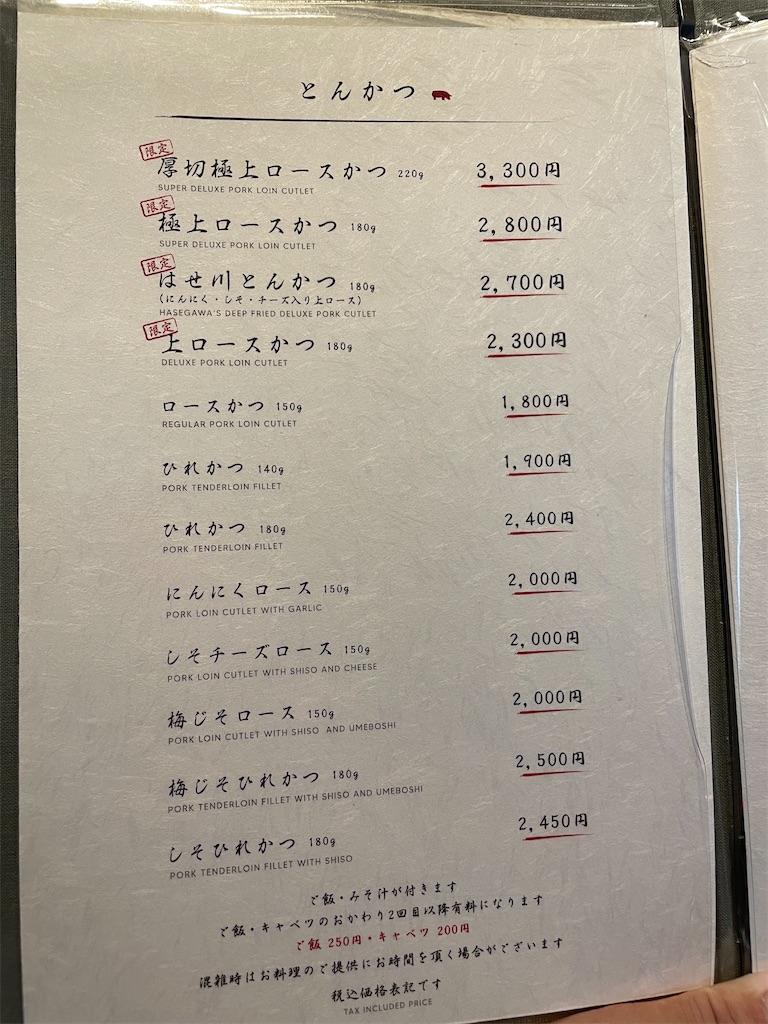 とんかつ
限定
厚切極上ロースかつ 220g 3,300円
SUPER DELUXE PORK LOIN CUTLET
限定
極上ロースかつ 180g 2,800円
SUPER DELUXE PORK LOIN CUTLET
限定
はせ川とんかつ 180g 2,700円
(にんにく・しそ・チーズ入り上ロース)
HASEGAWA'S DEEP FRIED DELUXE PORK CUTLET
限定
上ロースかつ 180g 2,300円
DELUXE PORK LOIN CUTLET
ロースかつ 150g 1,800円
REGULAR PORK LOIN CUTLET
ひれかつ 140g 1,900円
PORK TENDERLOIN FILLET
ひれかつ 180g 2,400円
PORK TENDERLOIN FILLET
にんにくロース 150g 2,000円
PORK LOIN CUTLET WITH GARLIC
しそチーズロース 150g 2,000円
PORK LOIN CUTLET WITH SHISO AND CHEESE
梅じそロース 150g 2,000円
PORK LOIN CUTLET WITH SHISO AND UMEBOSHI
梅じそひれかつ 180g 2,500円
PORK TENDERLOIN FILLET WITH SHISO AND UMEBOSHI
しそひれかつ 180g 2,450円
PORK TENDERLOIN FILLET WITH SHISO
ご飯・みそ汁が付きます
ご飯・キャベツのおかわり2回目以降有料になります
ご飯 250円・キャベツ 200円
混雑時はお料理のご提供にお時間を頂く場合がございます
税込価格表記です
TAX INCLUDED PRICE